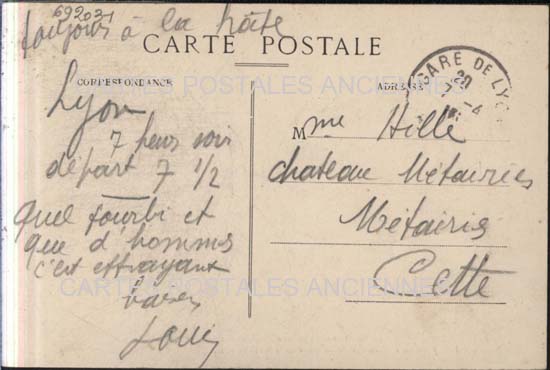 692031
toujours à la hâte
CARTE POSTALE
CARTES POSTALES ANCIENNES
CORRESPONDANCE
ADRESSE
GARE DE LYO
20
4
Lyon
7 heurs soir
départ 7 1/2
quel fourbi et
que d'hommes
c'est effrayant
Louis
Mme Hille
chateau Métairies
Métairie
Cette
CARTES POSTALES ANCIENNES